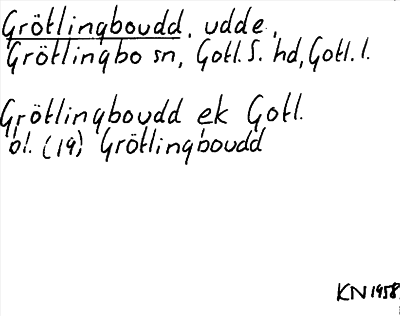 Grötlingboudd, udde,
Grötlingbo sn, Gotl. S. hd, Gotl. l.
Grötlingboudd ek Gotl.
bl. (19) Grötlingboudd
KN 1958.